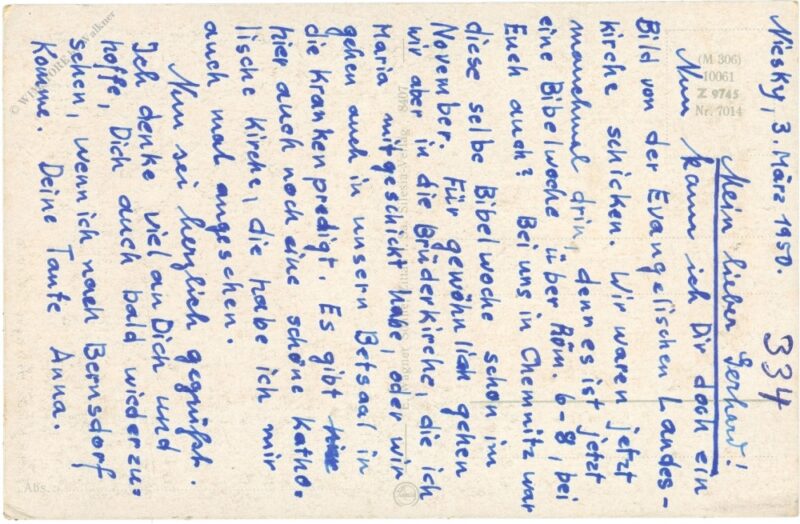 Niesky, 3. März 1950.
334
Mein lieber Gerhard!
Nun kann ich Dir doch ein
Bild von der Evangelischen Landes-
kirche schicken. Wir waren jetzt
manchmal drin, denn es ist jetzt
eine Bibelwoche über Röm. 6-8, bei
Euch auch? Bei uns in Chemnitz war
diese selbe Bibelwoche schon im
November. Für gewöhnlich gehen
wir aber in die Brüderkirche, die ich
Maria mitgeschickt habe, oder wir
gehen auch in unsern Betsaal in
die Krankenpredigt. Es gibt
hier auch noch eine schöne Katho-
lische Kirche, die habe ich mir
auch mal angesehen.
Nun sei herzlich gegrüßt.
Ich denke viel an Dich und
hoffe, Dich auch bald wiederzu-
sehen, wenn ich nach Bernsdorf
komme. Deine Tante Anna.
(M 306)
10061
Z 9745
Nr. 7014
Walkner
8407
Abs.